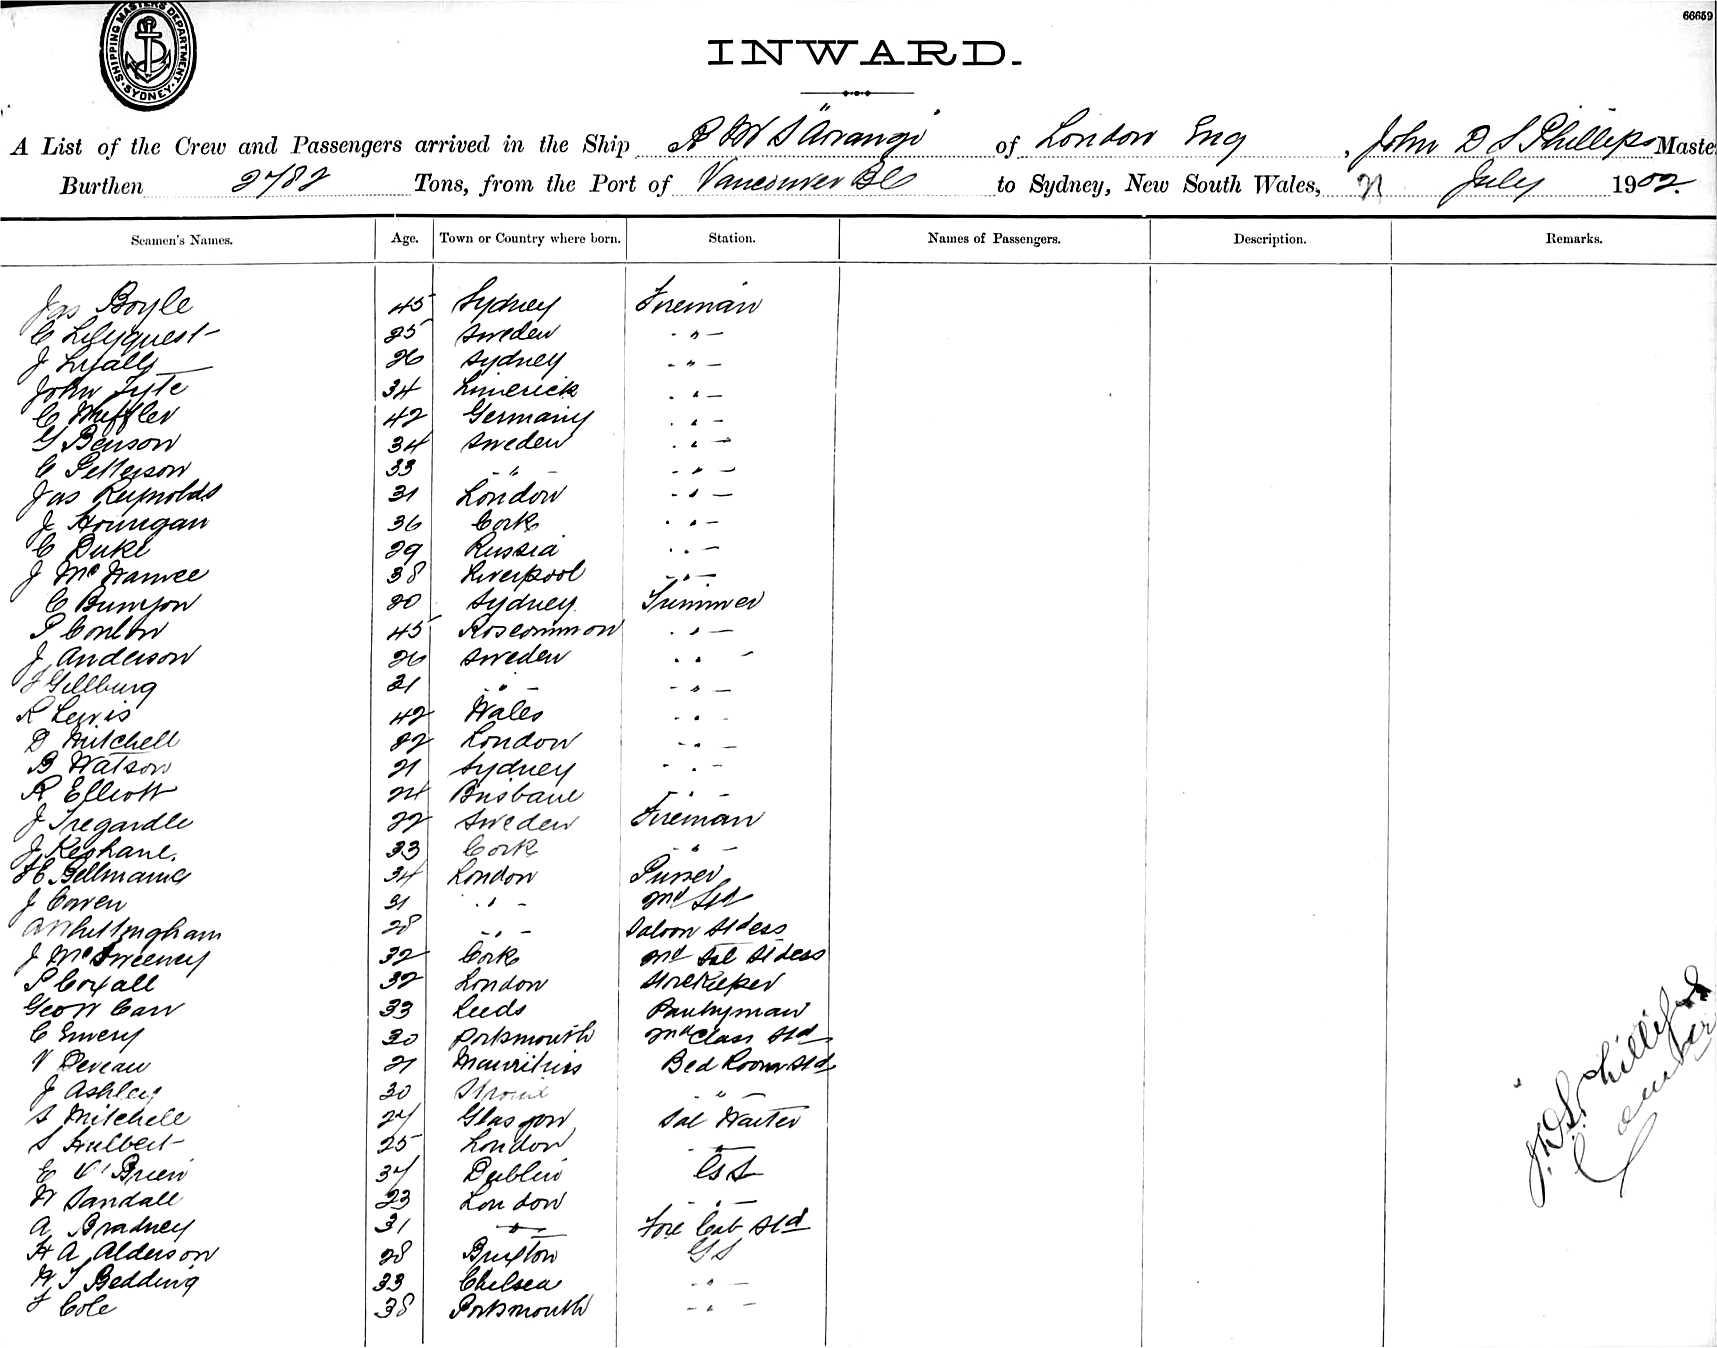 SHIPPING MASTERS DEPARTMENT SYDNEY
66659
INWARD.
A List of the Crew and Passengers arrived in the Ship R M S "Aorangi" of London Eng, John D S Phillips Master
Burthen 2782 Tons, from the Port of Vancouver BC to Sydney, New South Wales, July 1902.
Seamen's Names. Age. Town or Country where born. Station. Names of Passengers. Description. Remarks.
Jas Boyle 45 Sydney Fireman
C Lilyquest 25 Sweden - " -
J Lyall 26 Sydney - " -
John Tyte 34 Limerick - " -
C 42 Germany - " -
G Benson 34 Sweden - " -
C Petterson 33 - " - - " -
Jas Reynolds 31 London - " -
J Hourigan 36 Cork - " -
C Duke 29 Russia - " -
J Mc 38 Liverpool - " -
C 20 Sydney Trimmer
P Conlon 45 Roscommon - " -
J Anderson 26 Sweden - " -
Gillburg 21 - " - - " -
R Lewis 42 Wales - " -
D Mitchell 22 London - " -
B Watson 21 Sydney - " -
R Elliott 24 Brisbane - " -
J Tregardle 22 Sweden Fireman
J Keohane. 33 Cork - " -
34 London Purser
J Cowen 31 - " - Std
A Whittingham 28 - " - Saloon Stdess
J McSweeney 32 Cork Sal Stdess
P Coxall 32 London Storekeeper
Geo W Carr 33 Leeds Pantryman
C Emery 30 Portsmouth Class Std
V Deveau 21 Mauritius Bed Room Std
J Ashley 20 Stroud - " -
S Mitchell 24 Glasgow Sal Waiter
S Hulbert 25 London - " -
E O'Brien 34 Dublin
W Sandall 23 London - " -
A Bradney 31 - " - Fore Cab Std
H A Alderson 28 Brixton G S
W T Bedding 33 Chelsea - " -
F Cole 38 Portsmouth - " -
J. D. S. Phillips
Commander